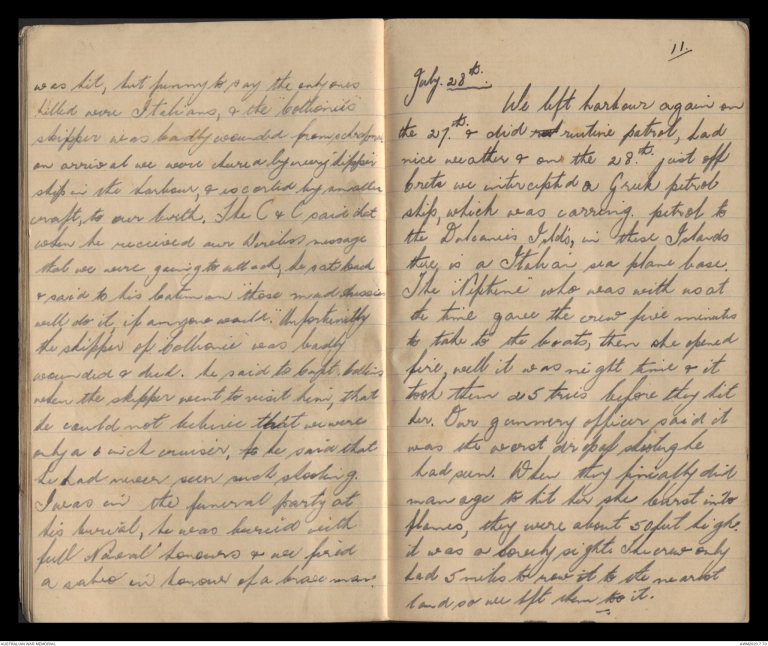 was hit, but funny to say the only ones
killed were Italians, & the "Colleoni's"
skipper was badly wounded from
on arrival we were cheered by every
ship in the harbour, & escorted by smaller
craft, to our berth. The C & C said that
when he received our Wireless message
that we were going to attack, he sat back
& said to his batman "those mad
will do it, if anyone would." Unfortunatly
the skipper of "Colleoni" was badly
wounded & died. he said to Capt. Collins
when the skipper went to visit him, that
he could not believe that we were
only a 6 inch cruiser, he said that
he had never seen such shooting.
I was in the funeral party at
his burial, he was buried with
full Naval honours & we fired
a salvo in honour of a brave man.
11.
July. 28th.
We left harbour again on
the 27th. & did routine patrol, had
nice weather & on the 28th. just off
Crete we intercepted a Greek petrol
ship, which was carring petrol to
the Islds, in these Islands
there is a Italian sea plane base.
The "Neptune" who was with us at
the time gave the crew five minutes
to take to the boats, then she opened
fire, well it was night time & it
took them 25 tries before they hit
her. Our gunnery officer said it
was the worst shooting he
had seen. When they finially did
manage to hit her she burst into
flames, they were about 50 feet high.
it was a lovely sight. The crew only
had 5 miles to row it to the nearest
land so we left them to it.
AUSTRALIAN WAR MEMORIAL